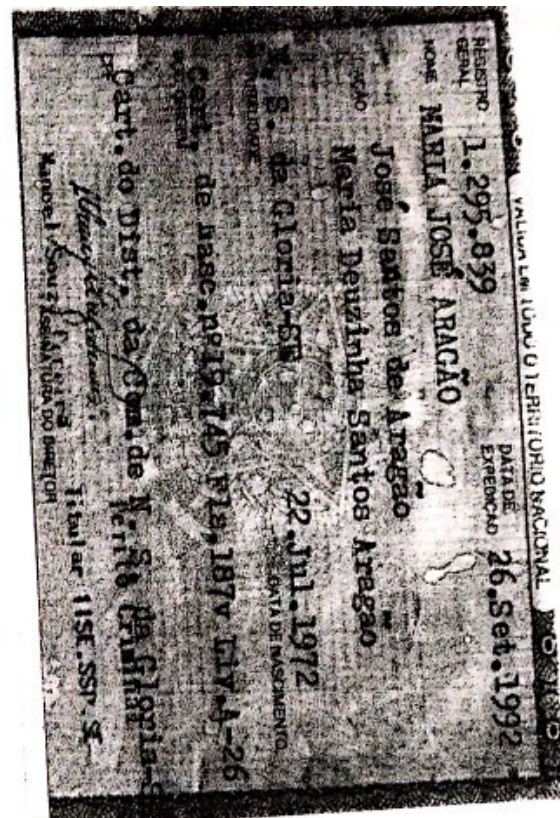 VÁLIDA EM TODO O TERRITÓRIO NACIONAL
REGISTRO GERAL 1.295.839 DATA DE EXPEDIÇÃO 26.Set.1992
NOME MARIA JOSÉ ARAGÃO
José Santos de Aragão
Maria Deuzinha Santos Aragão
N. S. da Gloria-SE 22.Jul.1972
DATA DE NASCIMENTO
Cert. de nasc.nº19.745 Fls,187v Liv.A-26
Cart.do Dist. da Com.de N. S. da Gloria-S
Manoel Souza
Titular IISE.SSP SE
ASSINATURA DO DIRETOR